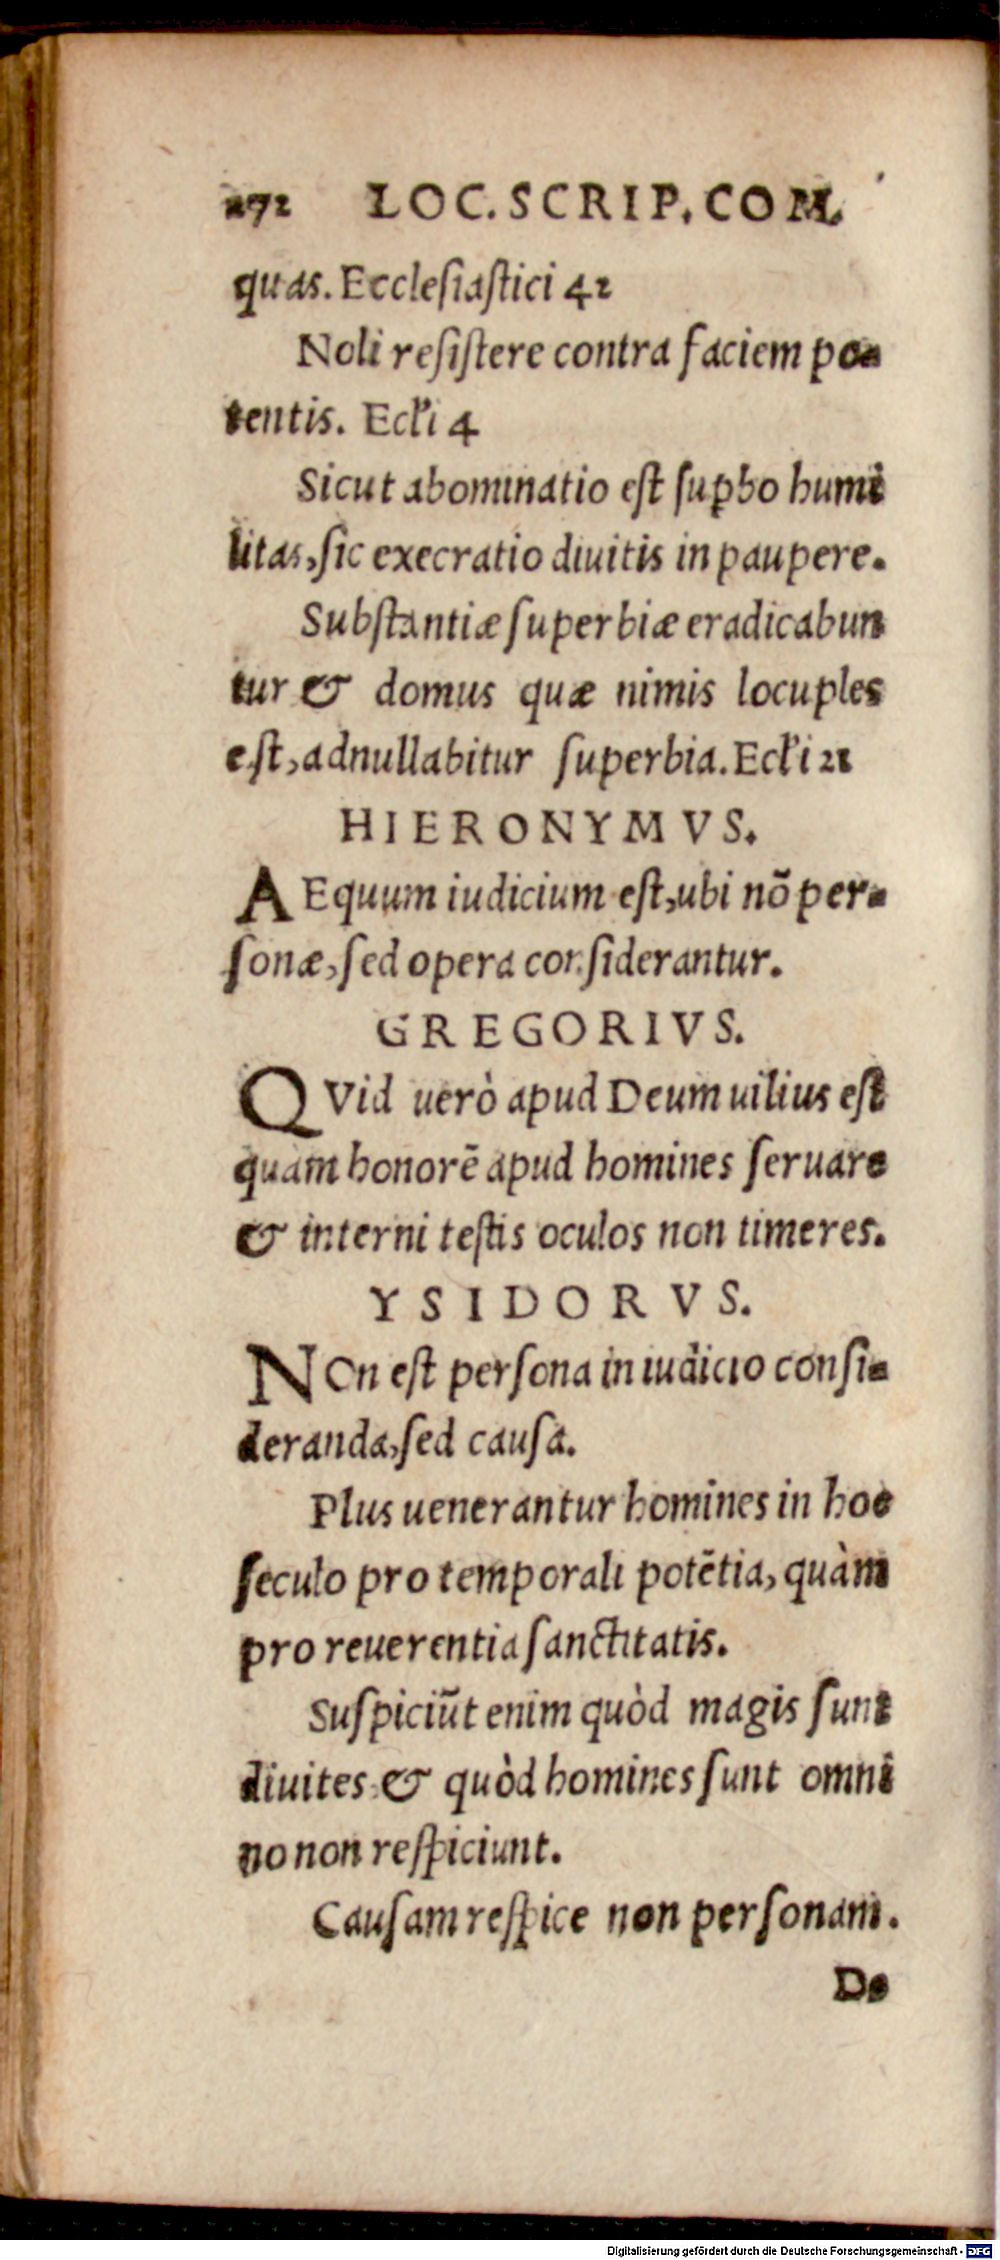 272 LOC. SCRIP. COM.
quas. Ecclesiastici 42
Noli resistere contra faciem po-
tentis. Ecl'i 4
Sicut abominatio est supbo humi
litas, sic execratio diuitis in paupere.
Substantiæ superbiæ eradicabun
tur & domus quæ nimis locuples
est, adnullabitur superbia. Ecl'i 21
HIERONYMVS.
AEquum iudicium est, ubi nõ per-
sonæ, sed opera considerantur.
GREGORIVS.
QVid uerò apud Deum uilius est
quam honorē apud homines seruare
& interni testis oculos non timeres.
YSIDORVS.
NOn est persona in iudicio consi-
deranda, sed causa.
Plus uenerantur homines in hoc
seculo pro temporali potētia, quàm
pro reuerentia sanctitatis.
Suspiciūt enim quòd magis sunt
diuites & quòd homines sunt omni
no non respiciunt.
Causam respice non personam.
De
Digitalisierung gefördert durch die Deutsche Forschungsgemeinschaft - DFG